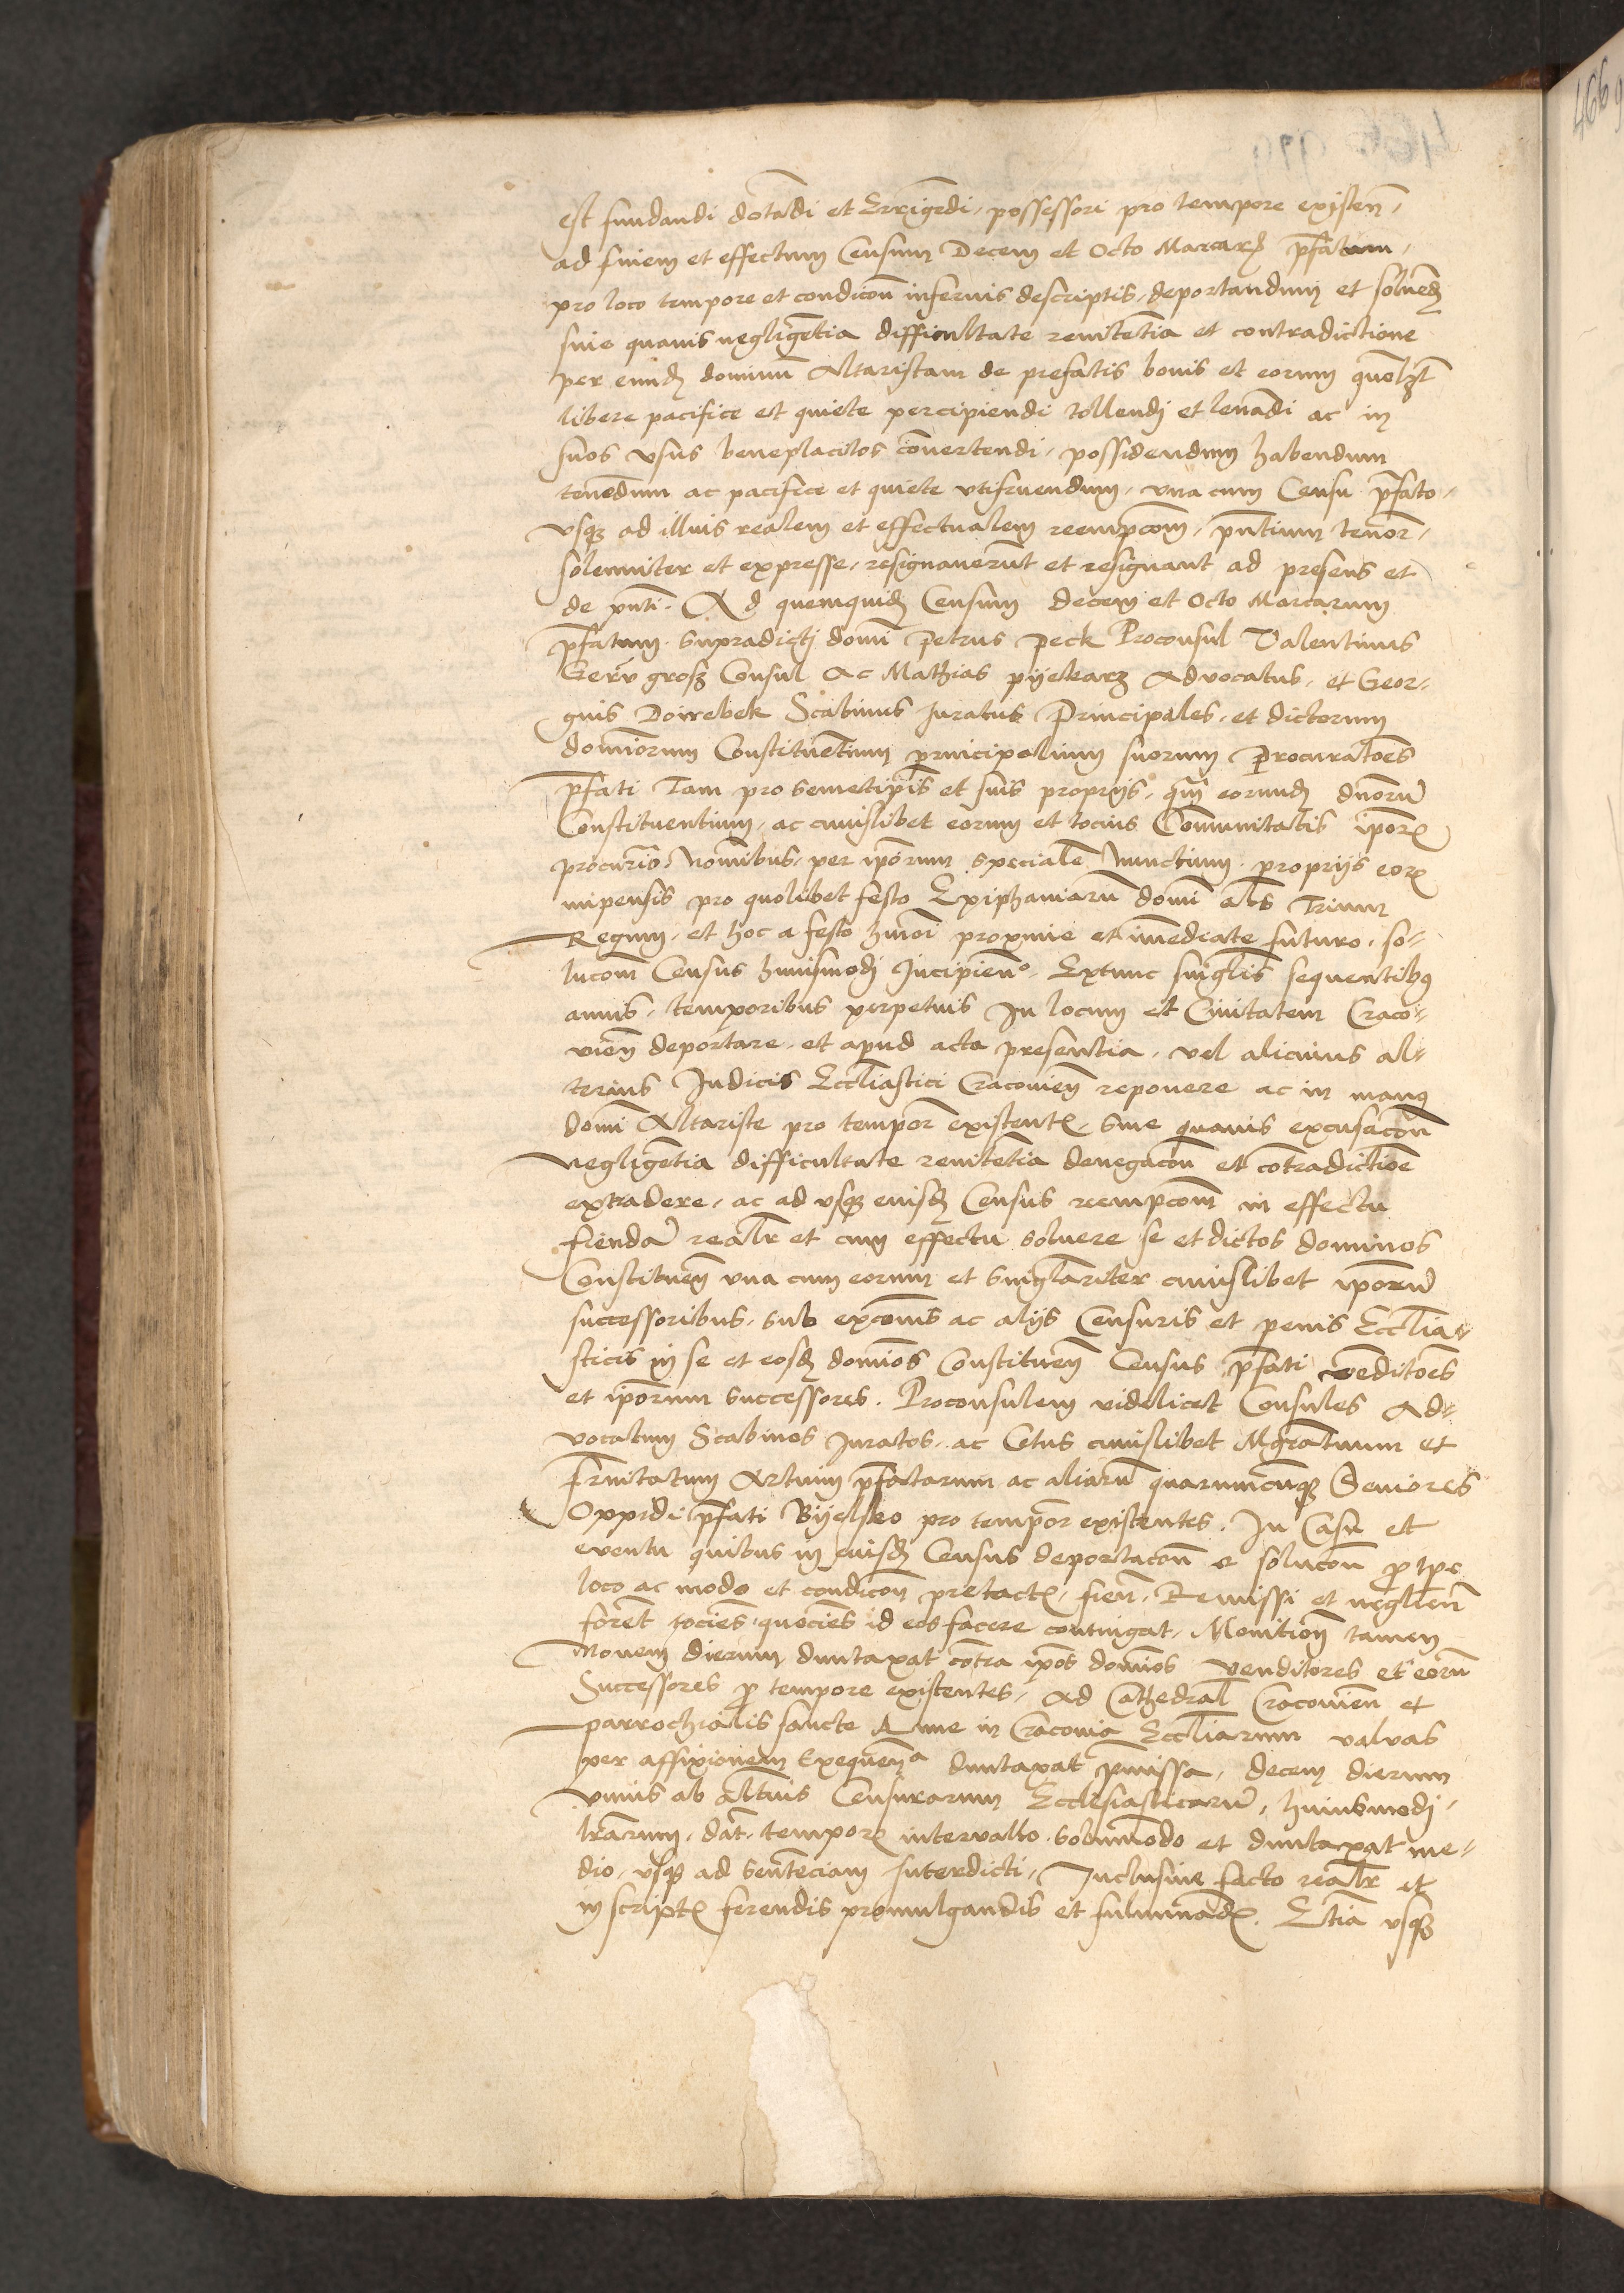 est fundandi dotādi et Erigēdi, possessori pro tempore existeñ,
ad finem et effectum Censum Decem et Octo Marcarꝝ p̄fatum,
pro loco tempore et condicoñ inferius descriptis, deportandum et soluend̨
sine quauis negligētia difficultate renitētia et contradictione
per eund̨ dominū Altaristam de prefatis bonis et eorum quolꝫt
libere pacifice et quiete percipiendi tollendi et leuādi ac in
suos vsus beneplacitos cōuertendi, possidendum habendum
tenēdum ac pacifice et quiete vtifruendum, vna cum Censu p̄fato,
vsqꝫ ad illius realem et effectualem reempcom̄, pn̄tium tenor̄,
solenniter et expresse, resignauerūt et resignant ad presens et
de pn̄ti. Ad quemquid̨ Censum decem et Octo Marcarum
p̄fatum supradicti domi Petrus Peck Proconsul Valentinus
grosz Consul Ac Mathias pijekarz Advocatus, et Geor-
gius Doirebek Scabinus Juratus Principales, et dictorum
dominorum Constituētium principalium suorum Procuratoēs
p̄fati Tam pro semetip̄is et suis proprijs, q̄m eorund̨ dnōrū
Constituentium, ac cuiuslibet eorum et tocius Cōmunitatis ip̄orꝝ
procurīo Noīnibus, per ip̄orum specialē Nunctium proprijs eorꝝ
impensis pro quolibet festo Epiphaniarū domi als Trium
Regum, et hoc a festo hmōi proxime et īmediate futuro, so-
lucom̄ Census huiusmodi Incipieñ, Extunc singl̄is sequentibꝰ
annis, temporibus perpetuis In locum et Ciuitatem Craco-
uieñ deportare, et apud acta presentia, vel alicuius al-
terius Judicis Eccl̄iastici Cracouieñ reponere ac in manꝰ
domi Altariste pro tempor̄ existentꝭ, sine quauis excusacoñ
negligētia difficultate renitētia denegacoñ et cōtradictioē
extradere, ac ad vsqꝫ eiusd̨ Census reempcom̄ in effectu
fiendā real̄r et cum effectu soluere se et dictos dominos
Constitueñ vna cum eorum et singlariter cuiuslibet ip̄orū
successoribus, sub excōnis ac alijs Censuris et penis Eccl̄ia-
sticis in se et eosd̨ domīos Constitueñ Census p̄fati vēditoēs
et ip̄orum successores. Proconsulem videlicet Consules Ad-
vocatum Scabinos Juratos, ac Cetus cuiuslibet Mgr̄atuum et
fr̄nitatum Artium p̄fatarum ac aliarū quarumcūqꝫ Seniores
Oppidi p̄fati Bijelsko pro tempor̄ existentes. In Casu et
eventu quibus in eiusd̨ Census deportacoñ et solucoñ p̄ tp̄e
loco ac modo et condicoñ pretactꝭ, fieñ, Remissi et negl̄ieñ
forēt tocies, quocies id eos facere contingat, Monitioñ tamen
Nouem dierum duntaxat cōtra ip̄os domīos Venditores et eorū
Successores p̄ tempore existentes, ad Cathedral̄ Cracouieñ et
parrochialis sancte Anne in Cracouia Eccl̄iarum valuas
per affixionem Exequeñᵃ duntaxat pmissa, decem dierum
vnius ab alterius Censurarum Ecclesiasticarū, huiusmodj,
lrārum, dat̄. temporꝝ intervallo solūmodo et duntaxat me-
dio, vsqꝫ ad Sentēciam Interdicti, Inclusiue facto real̄r et
in scriptꝭ ferendis promulgandis et fulminādꝭ. Etiā vsqꝫ